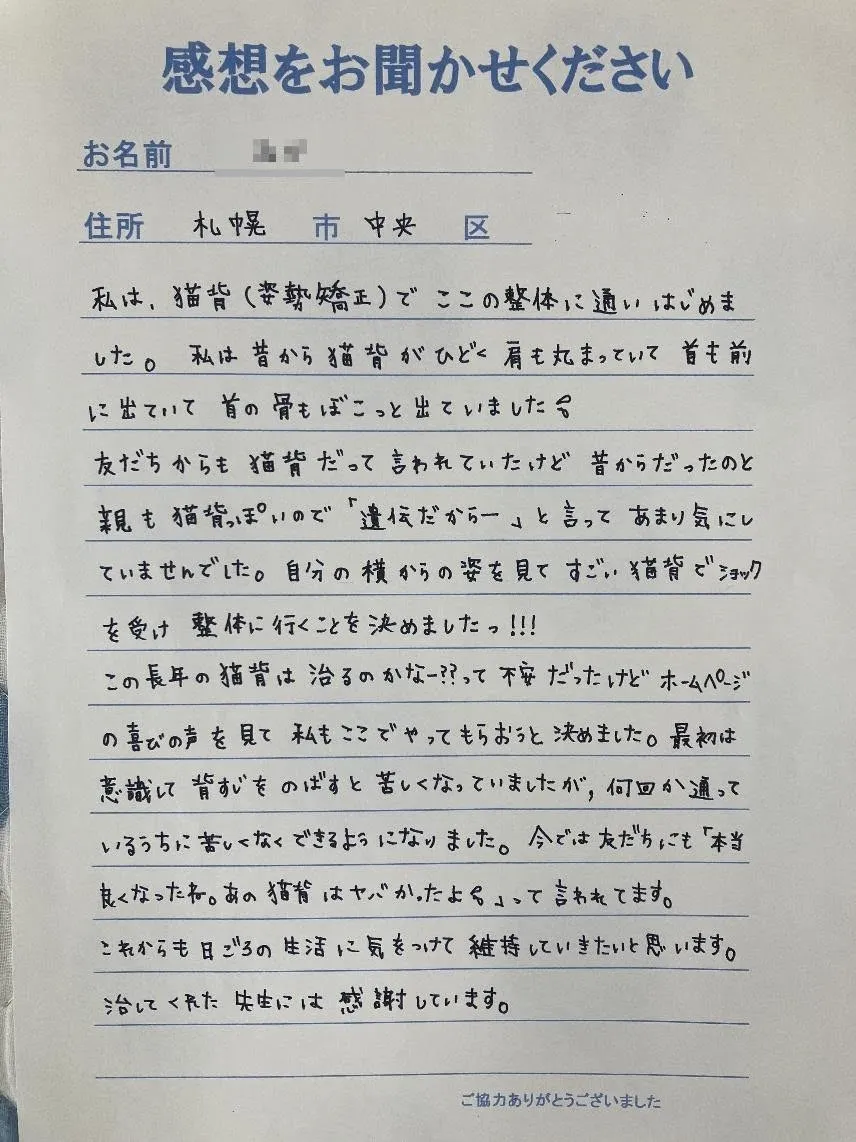 感想をお聞かせください
お名前
住所 札幌 市 中央 区
私は、猫背(姿勢矯正)で ここの整体に通い はじめま
した。 私は昔から猫背がひどく肩も丸まっていて 首も前
に出ていて 首の骨もぼこっと出ていました
友だちからも 猫背だって言われていたけど 昔からだったのと
親も猫背っぽいので「遺伝だからー」と言って あまり気にし
ていませんでした。自分の横からの姿を見て すごい猫背でショック
を受け 整体に行くことを決めましたっ!!!
この長年の猫背は 治るのかなー??って 不安だったけど ホームページ
の喜びの声を見て 私もここでやってもらおうと決めました。最初は
意識して 背すじを のばすと 苦しくなっていましたが, 何回か通って
いるうちに苦しくなくできるようになりました。今では友だちにも「本当
良くなったね。あの猫背はヤバかったよ」って言われてます。
これからも日ごろの生活に気をつけて 維持していきたいと思います。
治してくれた 先生には 感謝しています。
ご協力ありがとうございました